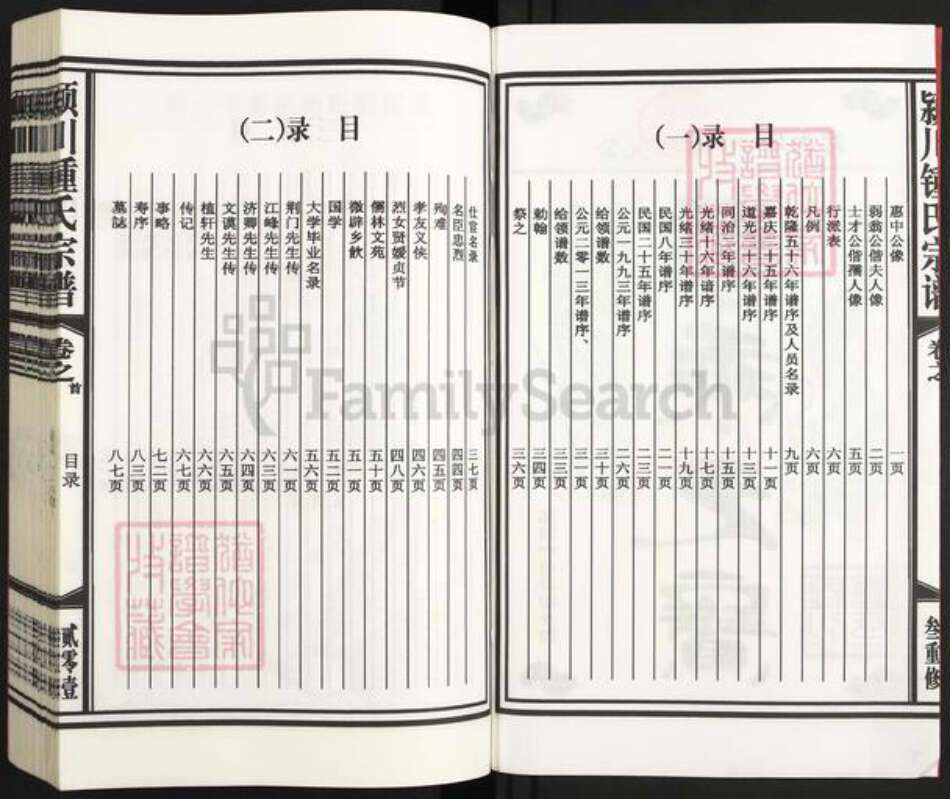 目录(一)
惠中公像 一页
弱翁公偕夫人像 二页
士才公偕孺人像 五页
行派表 六页
凡例 六页
乾隆五十六年谱序及人员名录 九页
嘉庆二十五年谱序 十一页
道光二十六年谱序 十三页
同治三年谱序 十五页
光绪十六年谱序 十七页
光绪三十年谱序 十九页
民国八年谱序 二一页
民国二十五年谱序 二三页
公元一九九三年谱序 二六页
给领谱数 三十页
公元二零一三年谱序、 三一页
给领谱数 三三页
勅翰 三四页
祭之 三六页
叁重修
目录(二)
仕宦名录 三七页
名臣忠烈 四四页
殉难 四五页
孝友义侠 四六页
烈女贤媛贞节 四八页
儒林文苑 五十页
微辟乡飲 五一页
国学 五二页
大学毕业名录 五六页
荆门先生传 六一页
江峰先生传 六三页
济卿先生传 六四页
文谟先生传 六五页
植轩先生 六六页
传记 六七页
事略 七二页
寿序 八三页
墓誌 八七页
颍川鍾氏宗谱
卷之首
目录
贰零壹
FamilySearch